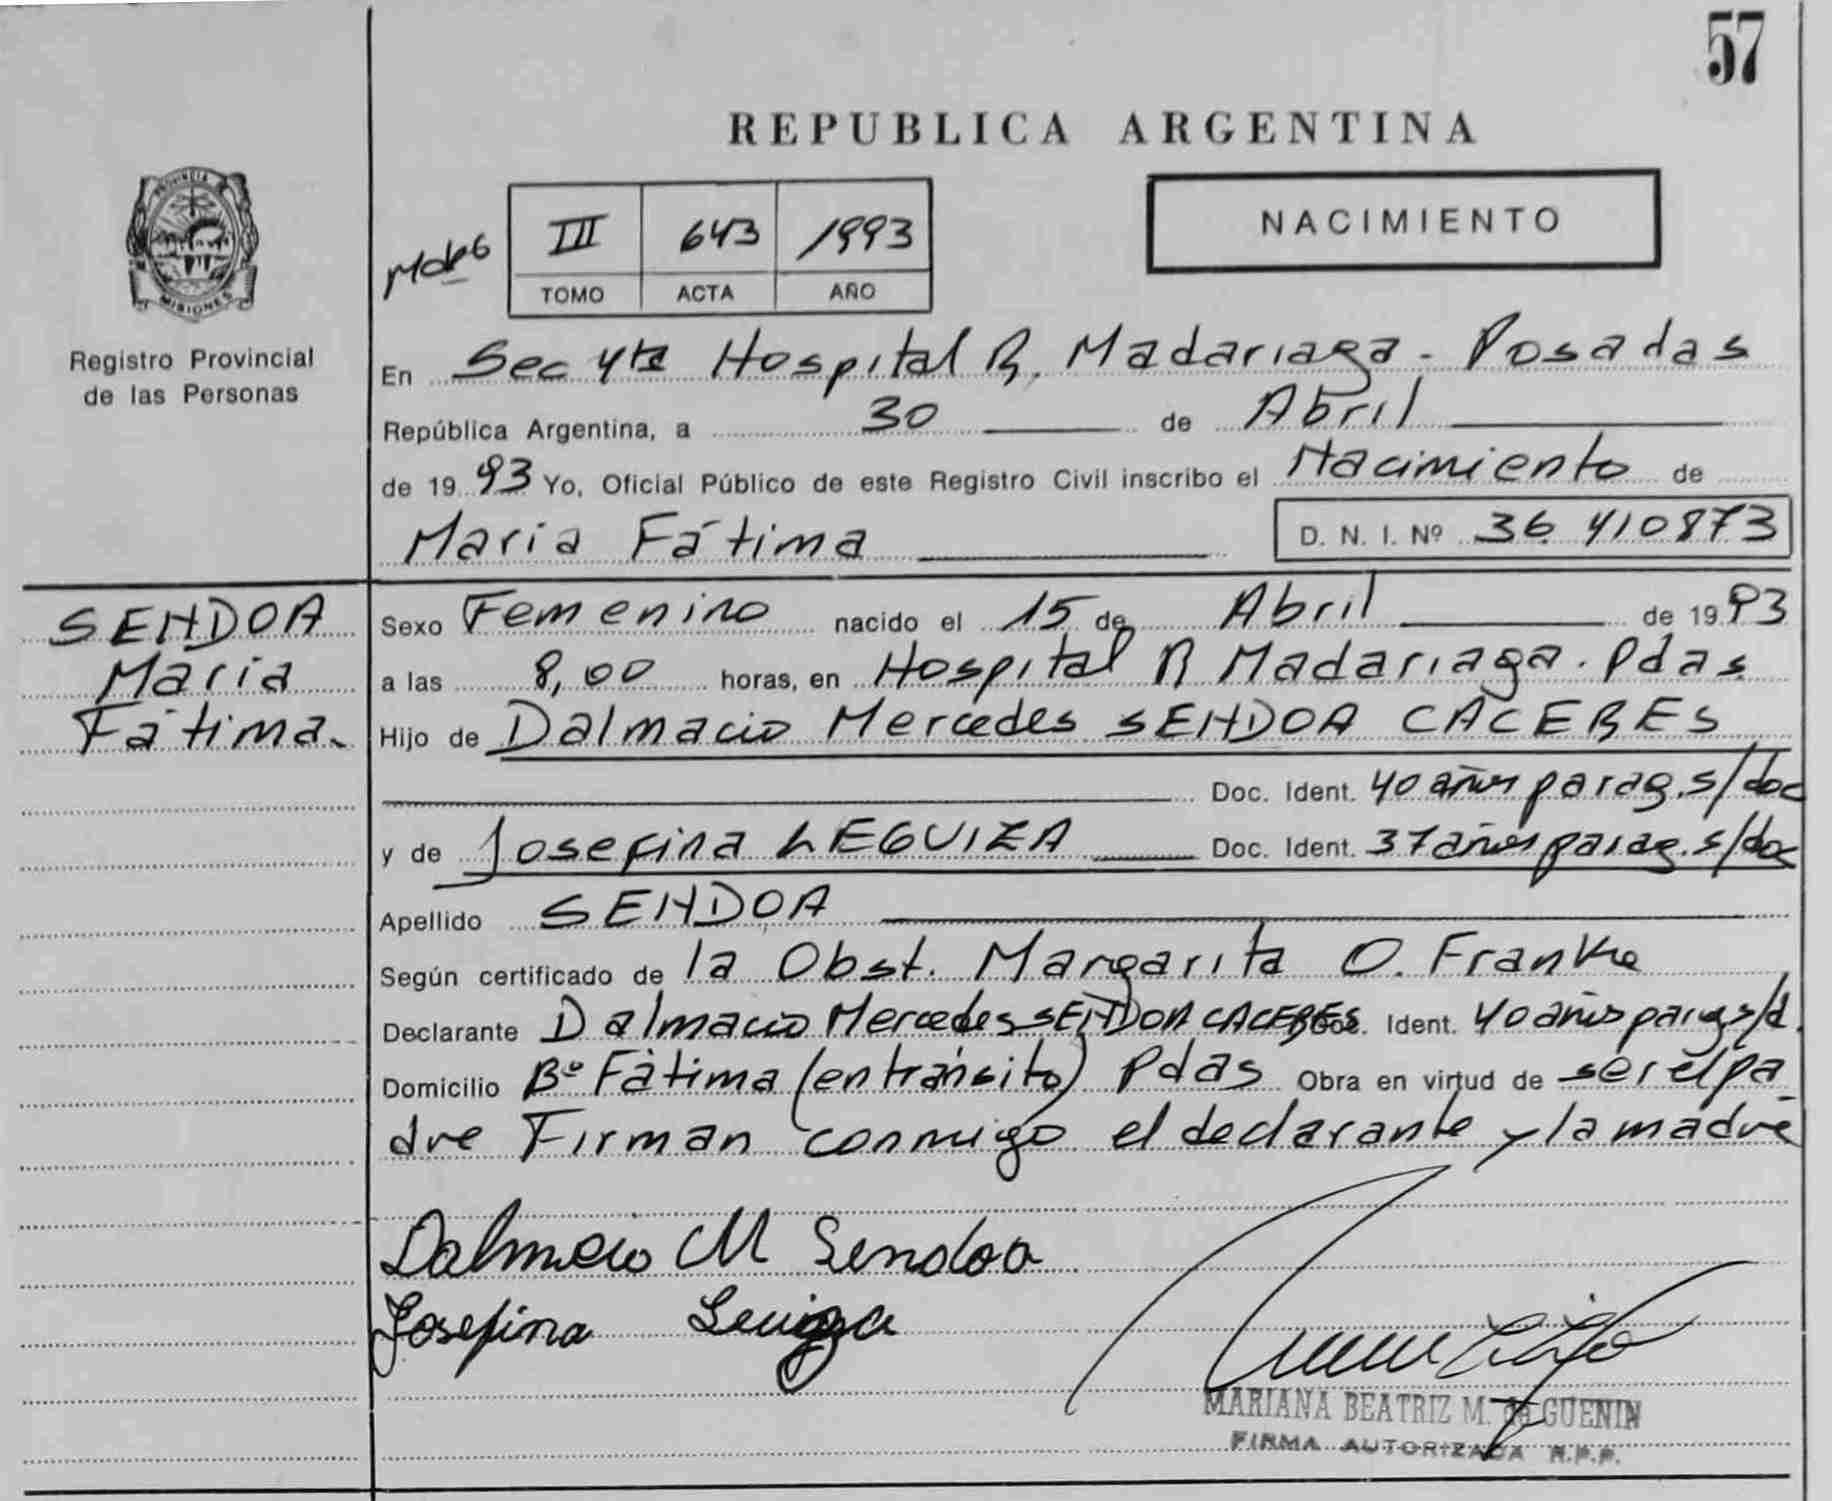 57
REPUBLICA ARGENTINA
PROVINCIA DE
MISIONES
Registro Provincial
de las Personas
III 643 1993
TOMO ACTA AÑO
NACIMIENTO
En Sec 4ta Hospital R. Madariaga - Posadas
República Argentina, a 30 de Abril
de 1993 Yo, Oficial Público de este Registro Civil inscribo el Nacimiento de
Maria Fátima D. N. I. Nº 36.410873
SENDOA
Maria
Fátima.
Sexo Femenino nacido el 15 de Abril de 1993
a las 8,00 horas, en Hospital R Madariaga. Pdas.
Hijo de Dalmacio Mercedes SENDOA CACERES
Doc. Ident. 40 años parag. s/doc
y de Josefina LEGUIZA Doc. Ident. 37 años parag. s/doc
Apellido SENDOA
Según certificado de la Obst. Margarita O. Franke
Declarante Dalmacio Mercedes SENDOA CACERES Doc. Ident. 40 años parag s/d.
Domicilio Bº Fátima (en tránsito) Pdas Obra en virtud de ser el pa
dre Firman conmigo el declarante y la madre
Dalmacio M Sendoa
Josefina Leuiza
MARIANA BEATRIZ M. de GUENIN
FIRMA AUTORIZADA R.P.P.